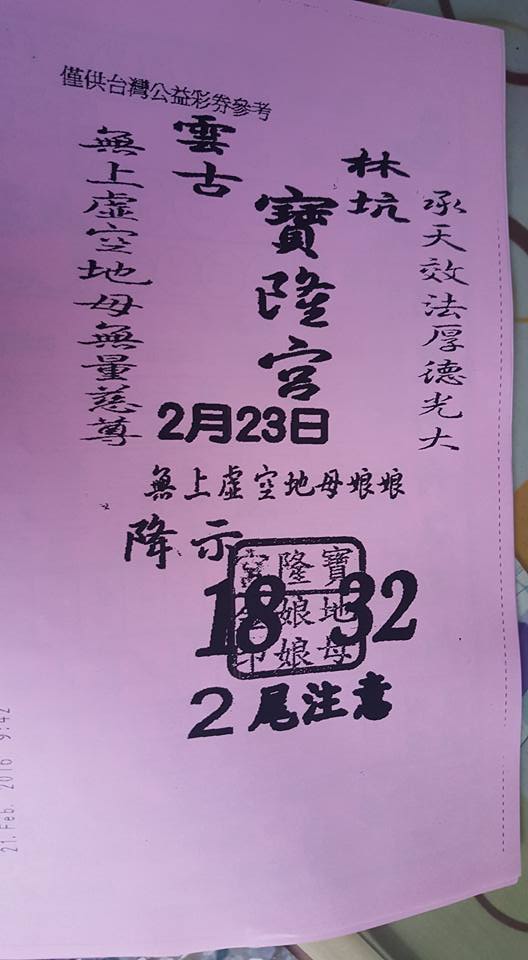 僅供台灣公益彩券參考
雲林
古坑
寶隆宮
承天效法厚德光大
無上虛空地母無量慈尊
2月23日
無上虛空地母娘娘
降示
18 32
寶隆宮
地母
娘娘
印
2尾注意
21.Feb. 2016 9:42